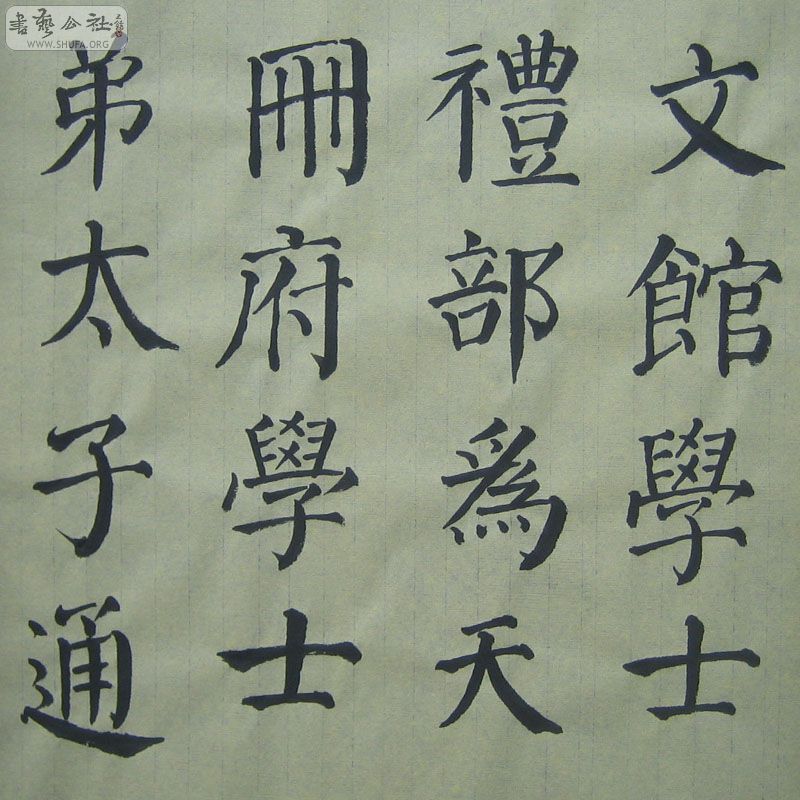 文館學士
禮部爲天
冊府學士
弟太子通
書藝公社
WWW.SHUFA.ORG